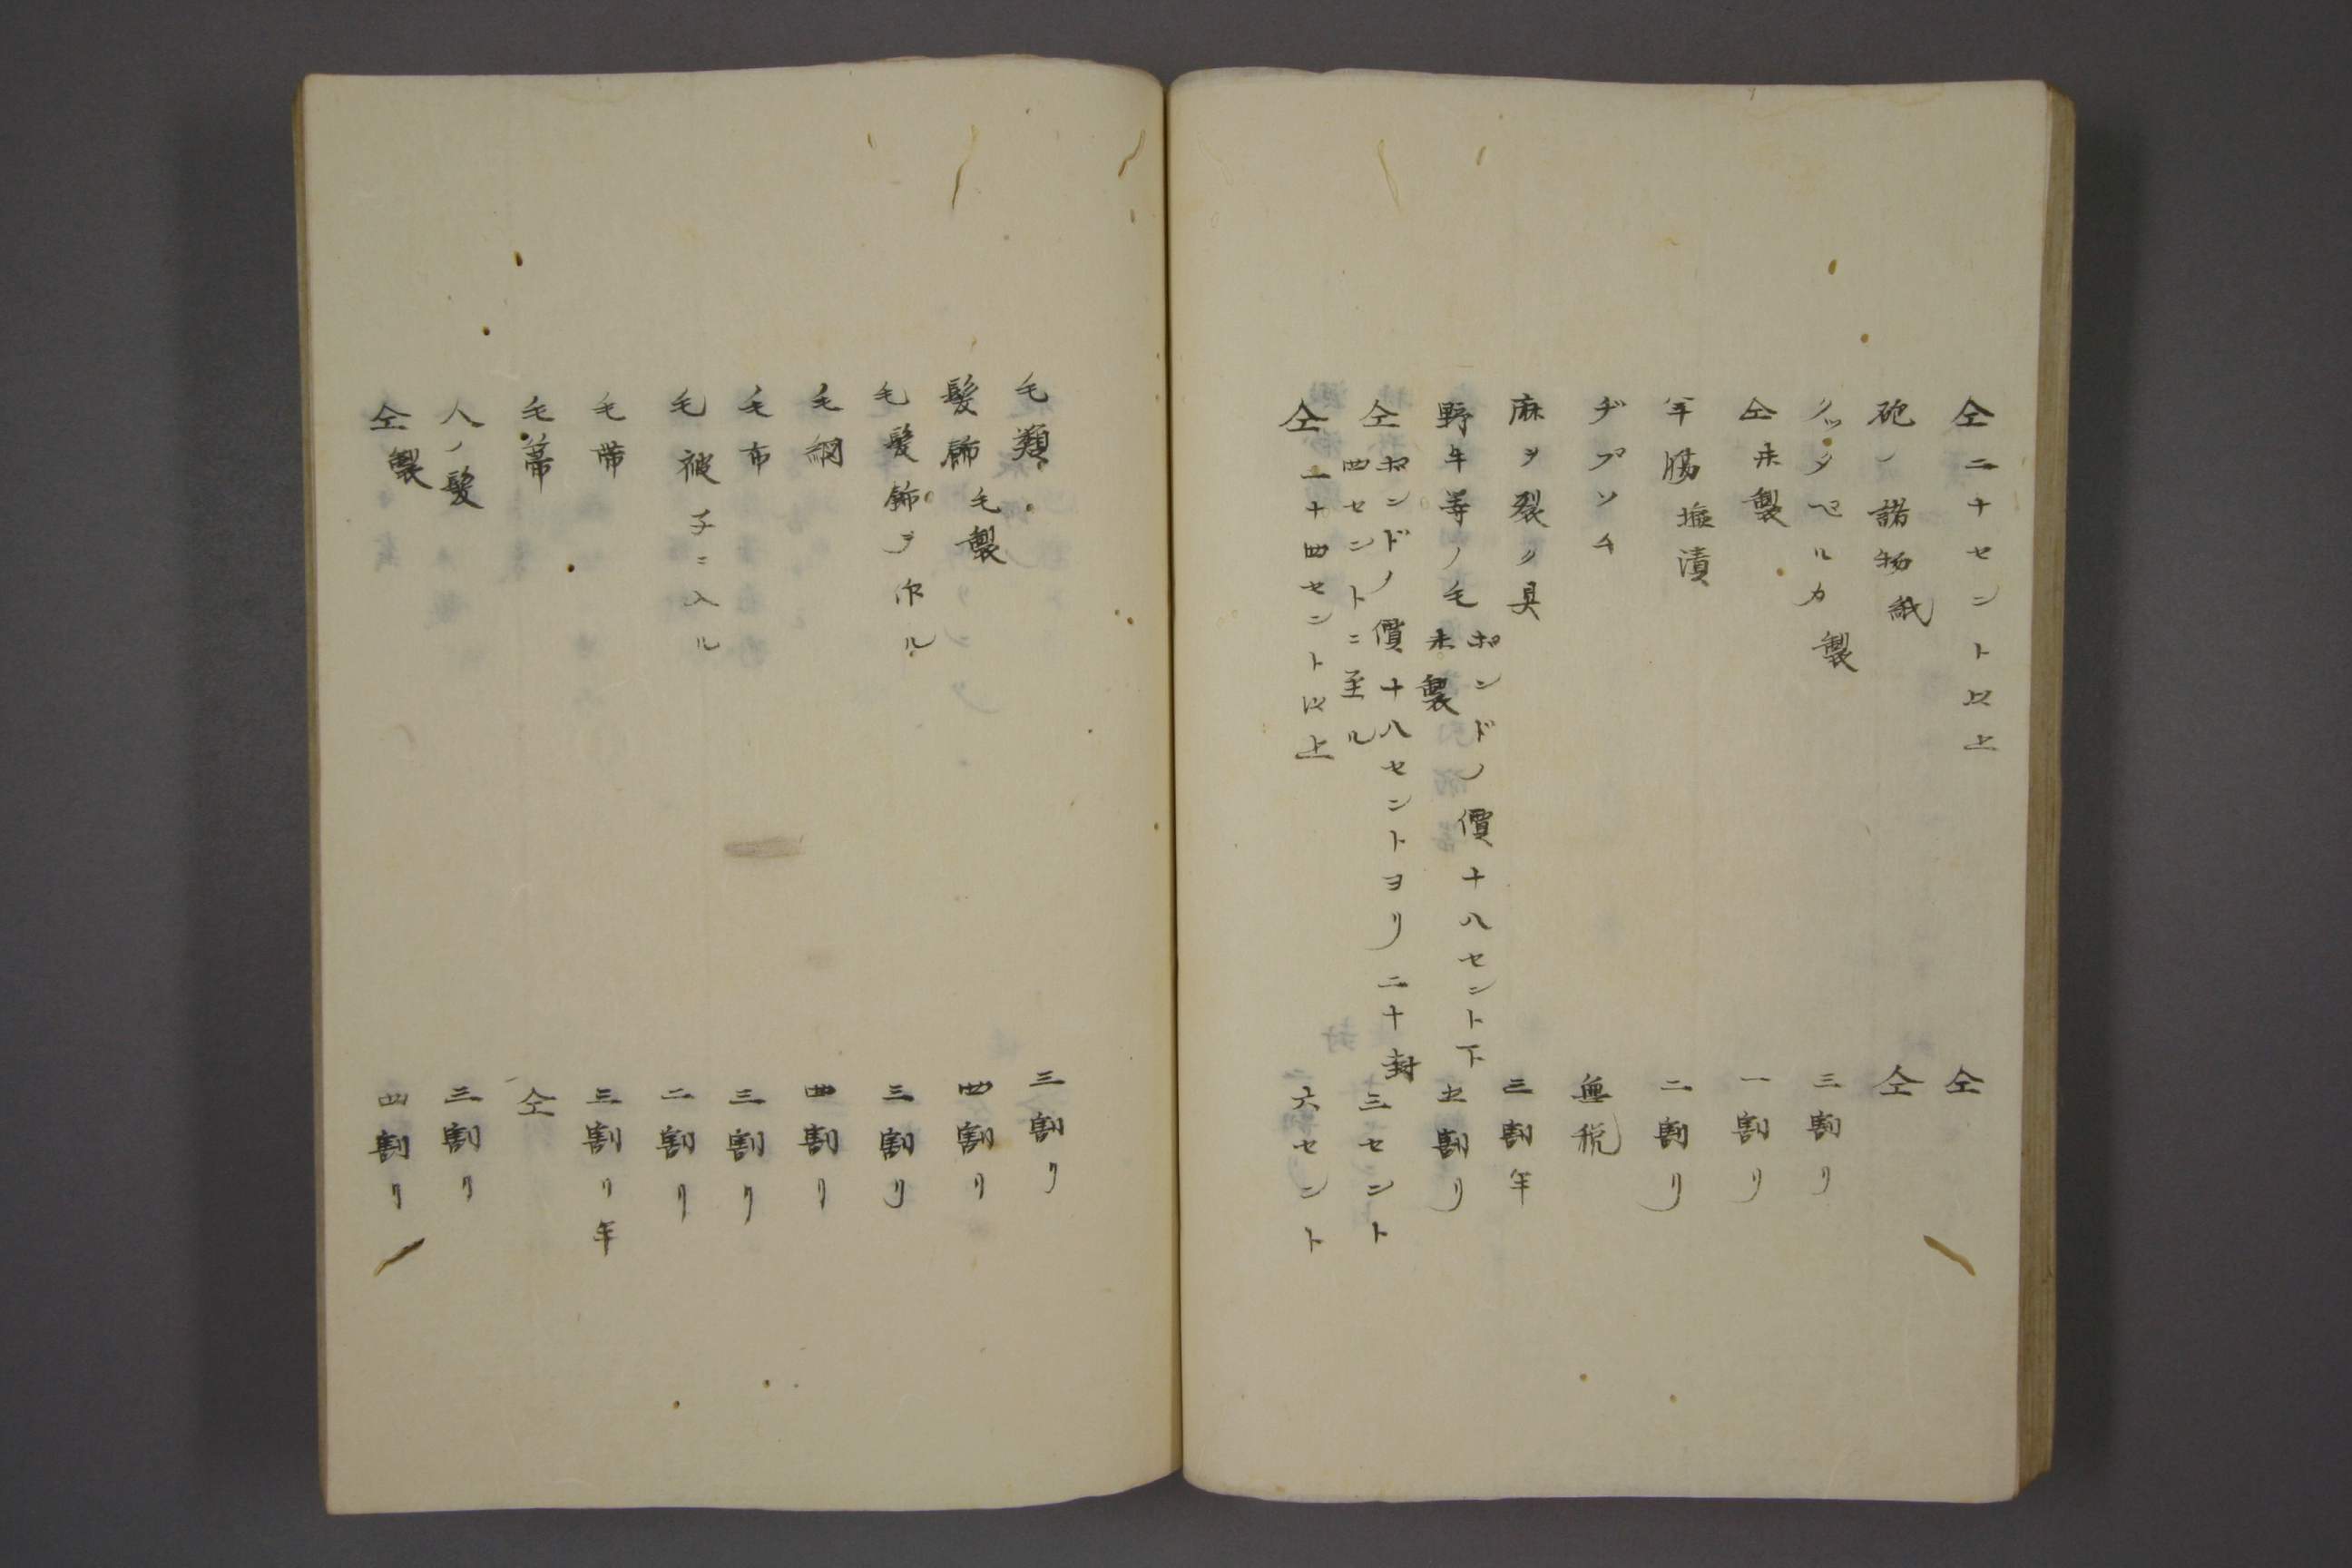 仝二十セント以上 仝
砲ノ諸物紙 仝
クッタペルカ製 三割リ
仝未製 一割リ
羊腸塩漬 二割リ
ヂプソム 無税
麻ヲ裂ク具 三割半
野牛等ノ毛未製 ポンドノ價十八セント下 五割リ
仝ポンドノ價十八セントヨリ二十四セントニ至ル 封三セント
仝二十四セント以上 六セント
毛類 三割リ
髪飾毛製 四割リ
毛髪飾ヲ作ル 三割リ
毛網 四割リ
毛布 三割リ
毛被 子ニ入ル 二割リ
毛帯 三割リ半
毛箒 仝
人ノ髪 三割リ
仝製 四割リ